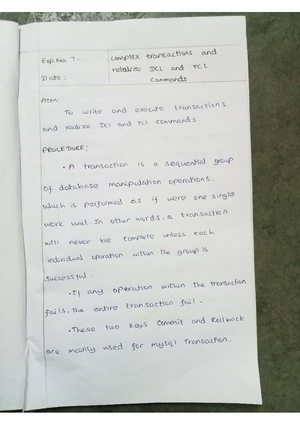 Exp.No: 7.
Complex transactions and
realize DCL and TCL
Commands
Date:
AIM:
To write and execute transactions
and realize Dcl and tcl commands.
PROCEDURE:
• A transaction is a sequential group
of database manipulation operations,
which is performed as if were one single
work unit. In other words, a transaction
will never be complete unless each
individual operation within the group is
successful.
• If any operation within the transaction
fails, the entire transaction fail.
• These two keys Commit and Rollback
are mainly used for mysql Transaction.